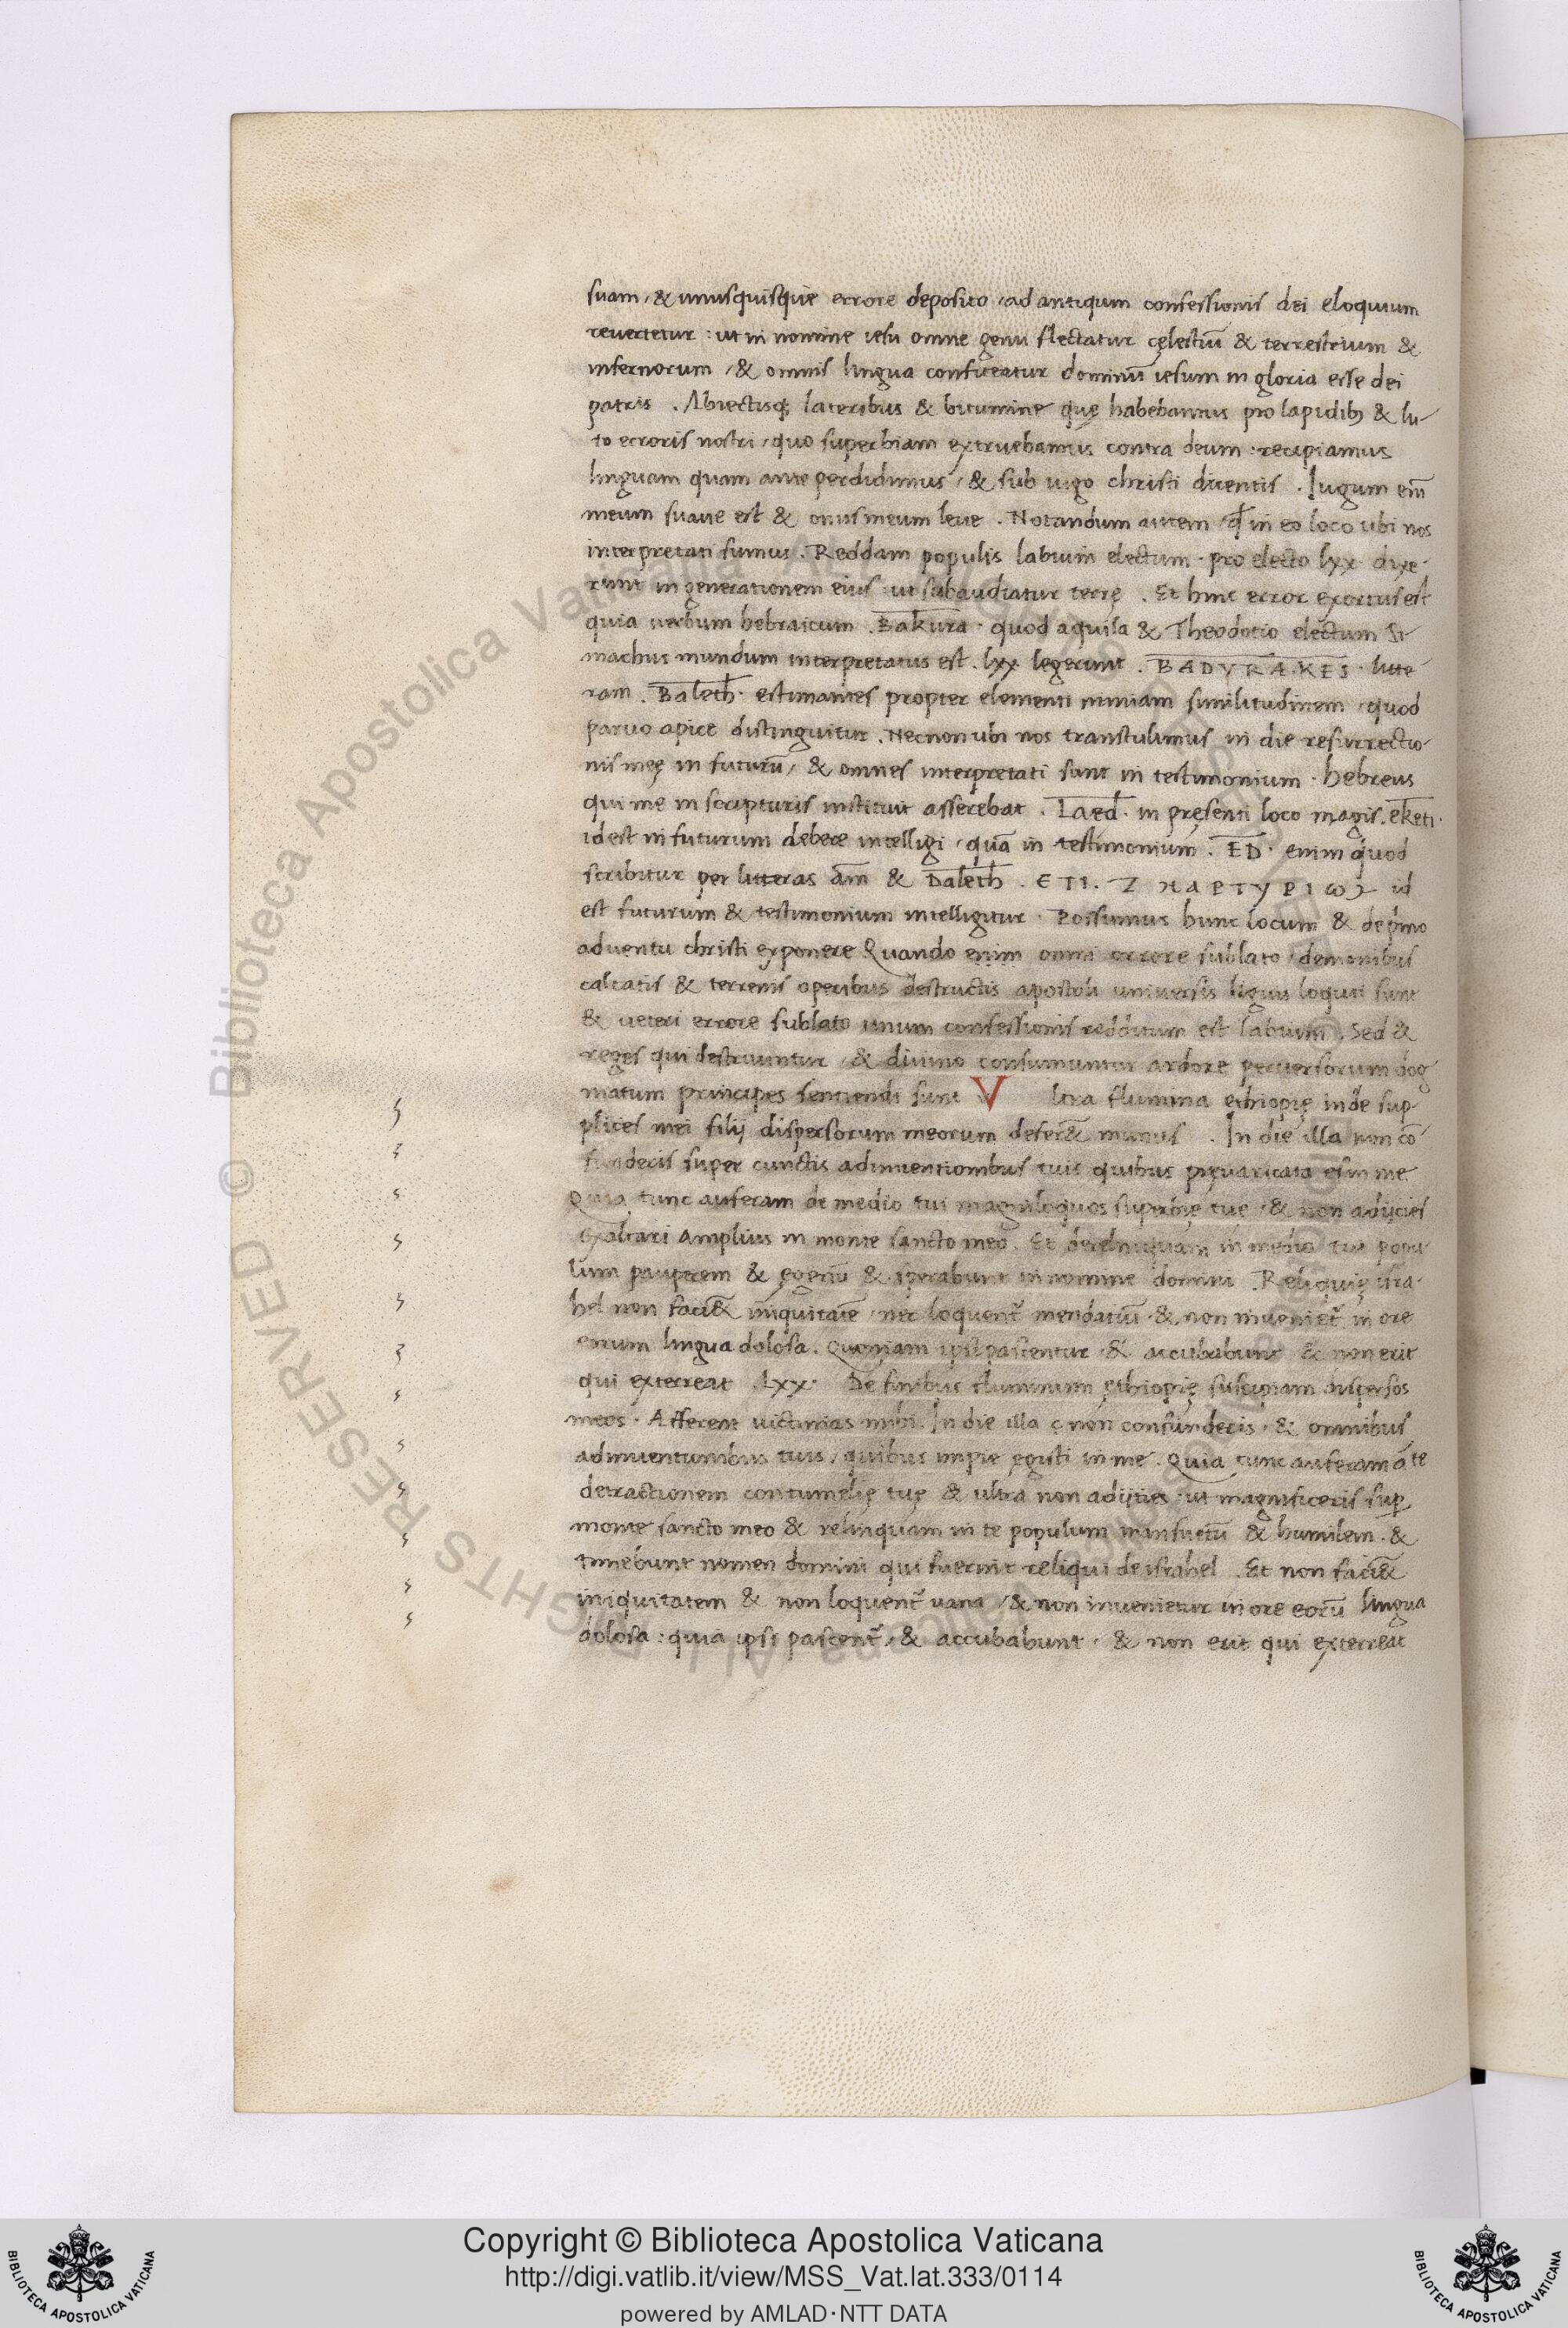 suam, & unusquisque errore deposito, ad antiqum confessionis dei eloquium
revertetur: ut in nomine iesu omne genu flectatur cęlestiũ & terrestrium &
infernorum, & omnis lingua confiteatur dominũ iesum in gloria esse dei
patris . Abiectisq; lateribus & bitumine quę habebamus pro lapidibꝫ & lu-
to erroris nostri, quo superbiam extruebamus contra deum: recipiamus
linguam quam ante perdidimus, & sub iugo christi dicentis . Iugum em̃
meum suave est & onus meum leve . Notandum autem, ꝙ in eo loco ubi nos
interpretati sumus . Reddam populis labium electum · pro electo lxx dixe-
runt in generationem eius: ut subaudiatur terrę . Et hinc error exortus est
quia verbum hebraicum . Bakura · quod aquila & Theodotio electum Si-
machus mundum interpretatus est . lxx legerunt . BADYRA·KES · litte-
ram . Baleth · estimantes propter elementi nimiam similitudinem, quod
parvo apice distinguitur . Necnon ubi nos transtulimus in die resurrectio-
nis meę in futurũ, & omnes interpretati sunt in testimonium · hebreus
qui me in scripturis instituit asserebat . Laed · in pręsenti loco magis . eketi ·
id est in futurum debere intelligi, quã in testimonium . ED · enim quod
scribitur per litteras am̃ & Daleth . ЄTI. Z ΗΑΡΤΥΡΙωϽ id
est futurum & testimonium intelligitur · Possumus hunc locum & de pͥmo
adventu christi exponere Quando enim omni errore sublato, demonibus
calcatis & terrenis operibus destructis apostoli universis liguis loquti sunt
& veteri errore sublato unum confessionis redditum est labium . Sed &
reges qui destruuntur, & divino consumuntur ardore perversorum dog
matum principes sentiendi sunt V ltra flumina ethiopię inde sup-
plices mei filij dispersorum meorum defer& munus . In die illa non cõ
funderis super cunctis adinventionibus tuis quibus pręvaricata es in me
Quia tunc auferam de medio tui magniloquos superbię tuę, & non adijcies
exaltari amplius in monte sancto meo . Et derelinquam in medio tui popu-
lum pauperem & egenũ & sperabunt in nomine domini . Reliquię isra-
hel non faci& iniquitatẽ, nec loquent̃ mendatiũ · & non inveniet̃ in ore
eorum lingua dolosa . Quoniam ipsi pascentur & accubabunt & non erit
qui exterreat . Lxx · De finibus fluminum ęthiopię suscipiam dispersos
meos · Afferent victimas mihi . In die illa ę non confunderis · & omnibus
adinventionibus tuis, quibus impie egisti in me . Quia tunc auferam a te
detractionem contumelię tuę & ultra non adijties ut magnificeris sup
monte sancto meo & relinquam in te populum mansuetũ & humilem · &
timebunt nomen domini qui fuerint reliqui de israhel . Et non faci&
iniquitatem & non loquent̃ vana, & non invenietur in ore eorũ lingua
dolosa: quia ipsi pascent̃, & accubabunt, & non erit qui exterreat
Copyright © Biblioteca Apostolica Vaticana
http://digi.vatlib.it/view/MSS_Vat.lat.333/0114
powered by AMLAD·NTT DATA
BIBLIOTECA APOSTOLICA VATICANA
BIBLIOTECA APOSTOLICA VATICANA